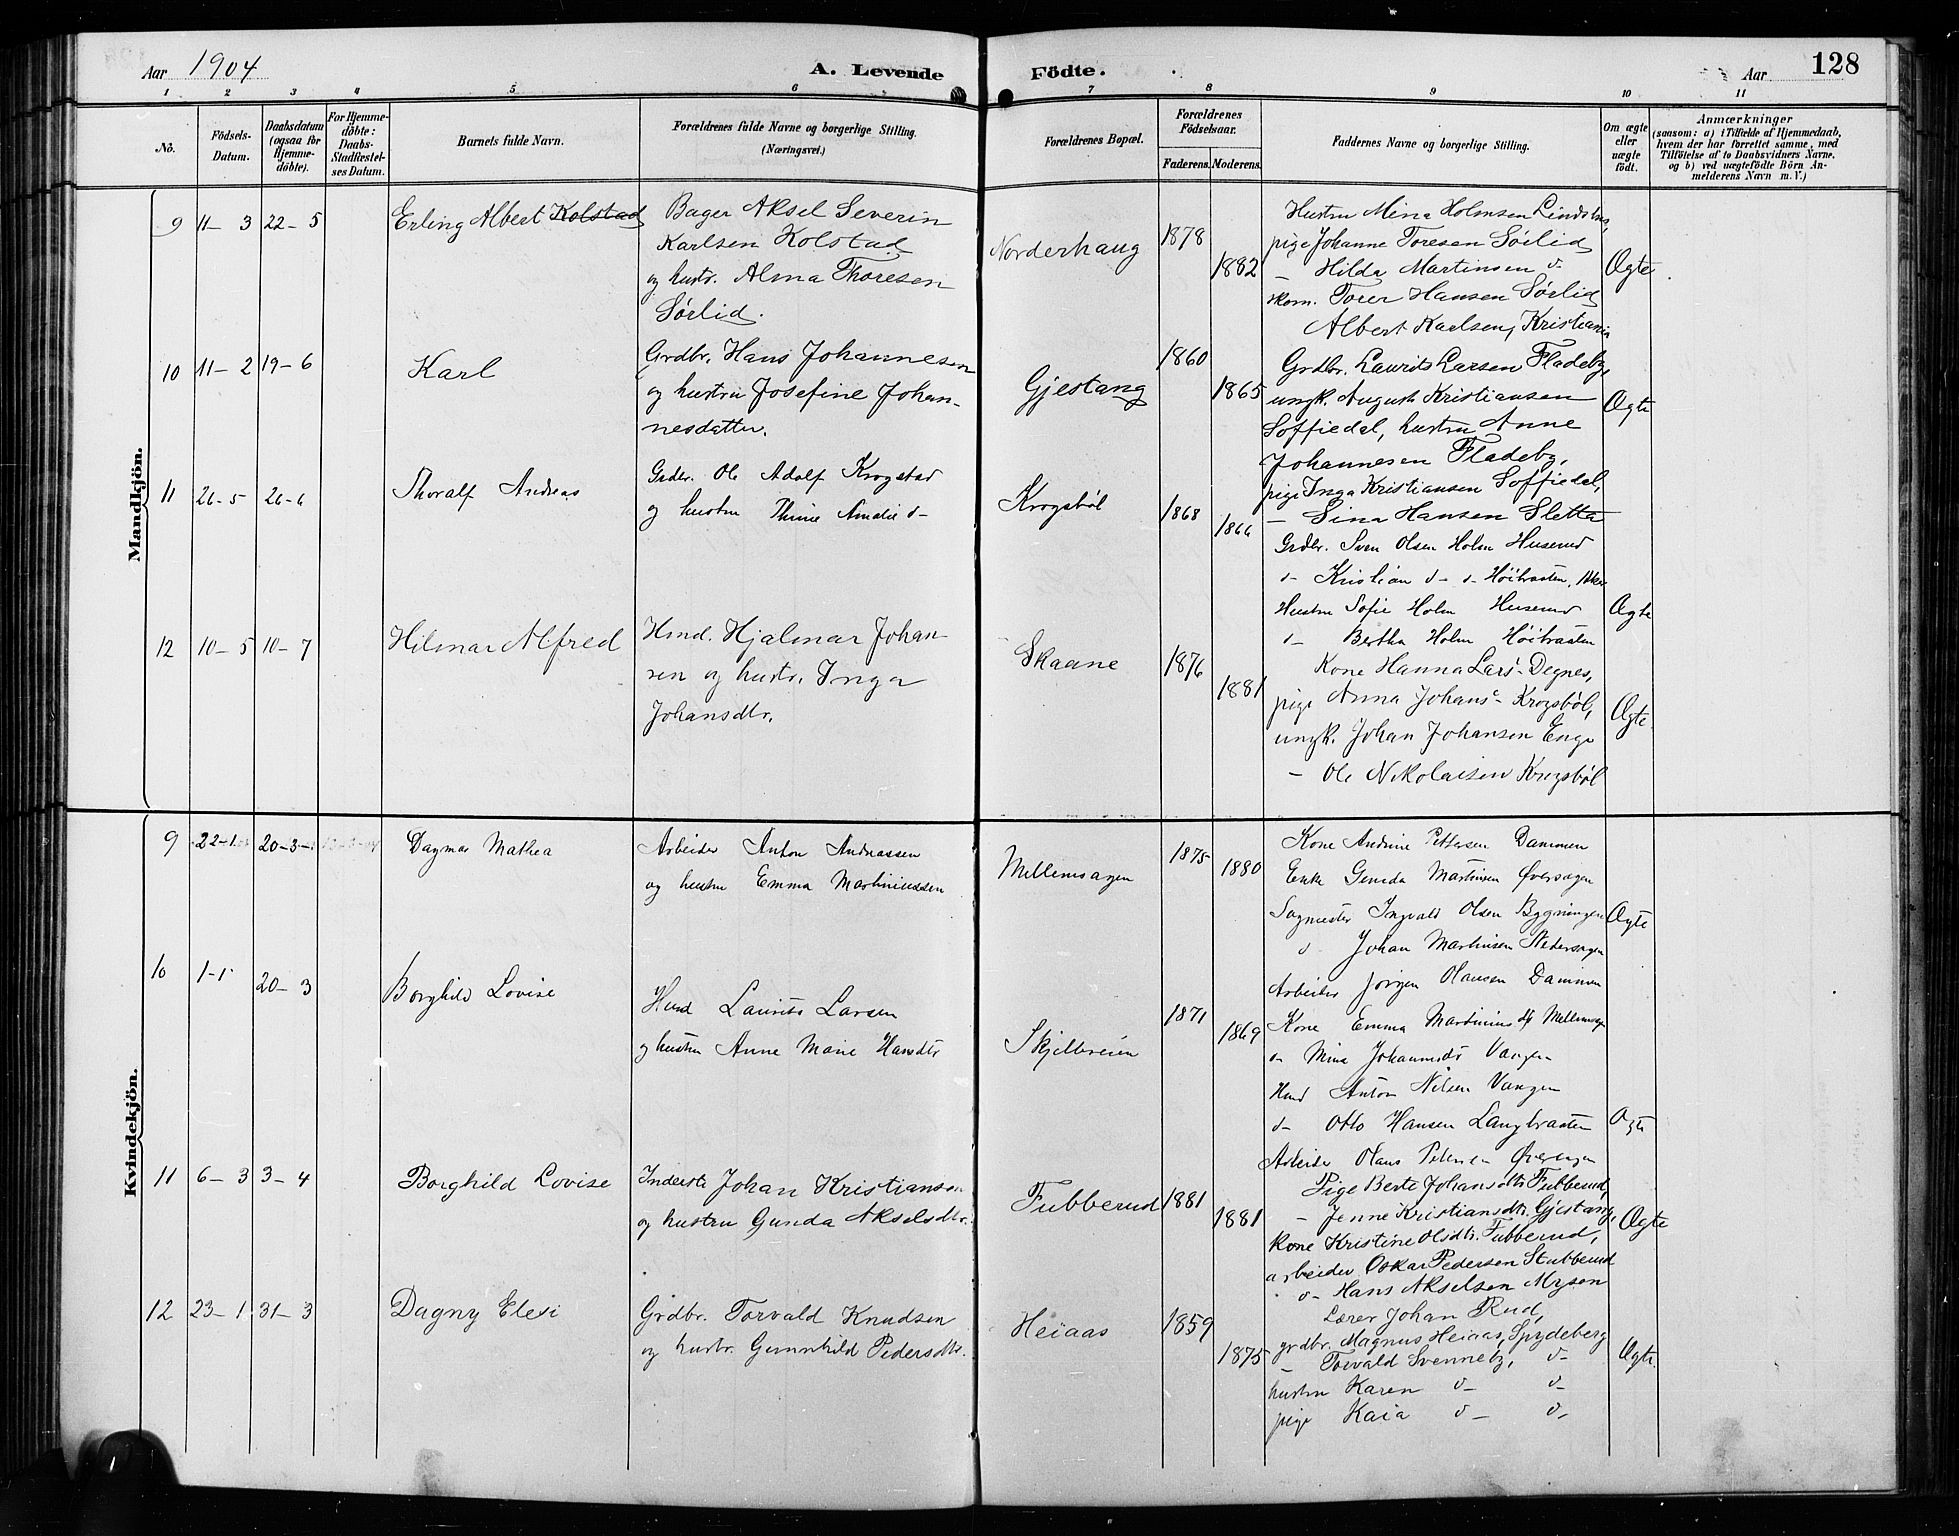 Aar 1904
A. Levende
Födte.
Aar
128
1 2 3 4 5 6 7 8 9 10 11
No.
Födsels-
Datum.
Daabsdatum
(ogsaa for
Hjemme-
döbte).
For Hjemme-
döbte:
Daabs-
Stadfæstel-
ses Datum.
Barnets fulde Navn.
Forældrenes fulde Navne og borgerlige Stilling.
(Næringsvei.)
Forældrenes Bopæl.
Forældrenes
Födselsaar.
Faderens. Moderens.
Faddernes Navne og borgerlige Stilling.
Om ægte
eller
uægte
født.
Anmærkninger
(saasom: a) i Tilfælde af Hjemmedaab,
hvem der har forrettet samme, med
Tilföielse af to Daabsvidners Navne,
og b) ved uægtefödte Börn An-
melderens Navn m. V.)
Mandkjön.
9 11-3 22-5 Erling Albert Kolstad
Bager Aksel Severin
Karlsen Kolstad
og hustr. Alma Thoresen
Sørlid.
Norderhaug 1878 1882
Hustru Mina Holmsen
pige Johanne Toresen Sörlid
- Hilda Martinsen d-
skom. Torer Hansen Sørlid
Albert Karlsen, Kristiania
Ægte
10 11-2 19-6 Karl
Grdbr. Hans Johannesen
og hustru Josefine Johan-
nesdatter.
Gjestang 1860 1865
Grdbr. Laurits Larsen Fladeby,
ungk. August Kristiansen
Soffiedal, hustru Anne
Johannesen Fladeby,
pige Inga Kristiansen Soffiedal,
- Sina Hansen Sletta
Ægte
11 26-5 26-6 Thoralf Andreas
Grdbr. Ole Adolf Krogstad
og hustru Thine Amalie d-
Krogsböl 1868 1866
Grdbr. Sven Olsen Holm Huserud
d- Kristian d- d- Höibraaten,
Hustru Sofie Holm Huserud
d- Bertha Holm Höibraaten
Ægte
12 10-5 10-7 Hilmar Alfred
Hmd. Hjalmar Johan-
sen og hustr. Inga
Johansdtr.
Skaane 1876 1881
Kone Hanna Lars- Degnes,
pige Anna Johans- Krogsböl,
ungk. Johan Johansen Enge
- Ole Nikolaisen Krogsböl
Ægte.
Kvindekjön.
9 22-1 20-3 Dagmar Mathea
Arbeider Anton Andreassen
og hustru Emma Martiniussen
Mellemsagen 1875 1880
Kone Andrine Pettersen Dammen
Enke Gunda Martinsen Øversagen
Sagmester Ingvald Olsen Bygningen
d- Johan Martinsen Nedersagen
Arbeider Jørgen Hansen Dammen
Ægte
10 1-1 20-3 Borghild Lovise
Hmd Laurits Larsen
og hustru Anne Marie Hansdtr
Skjelbreien 1871 1869
Kone Emma Martinius df Mellemsagen
d- Mina Johannesdtr Vangen
Hmd Anton Nilsen Vangen
d- Otto Hansen Langbraaten
Arbeider Olaus Petersen Øversagen
Ægte
11 6-3 3-4 Borghild Lovise
Inderst Johan Kristiansen
og hustru Gunda Akselsdtr.
Fubberud 1881 1881
Pige Berte Johansdtr. Fubberud,
- Jenne Kristiansdtr. Gjestang,
kone Kristine Olsdtr. Fubberud,
arbeider Oskar Pedersen Stubberud
d- Hans Akselsen Mysen
Ægte
12 23-1 31-3 Dagny Elesi
Grdbr. Torvald Knudsen
og hustr. Gunnhild Pedersdtr.
Heiaas 1859 1875
Lærer Johan Rud,
grdbr. Magnus Heiaas, Spydeberg
- Torvald Svenneby, d-
hustru Karen d- d-
pige Kaia d- d-
Ægte.